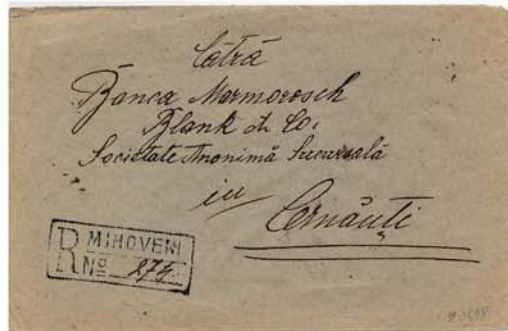 Cătră
Banca Marmorosch
Blank & Co.
Societate Anonimă Sucursală
in
Cernăuți
R MIHOVENI
Nº 274